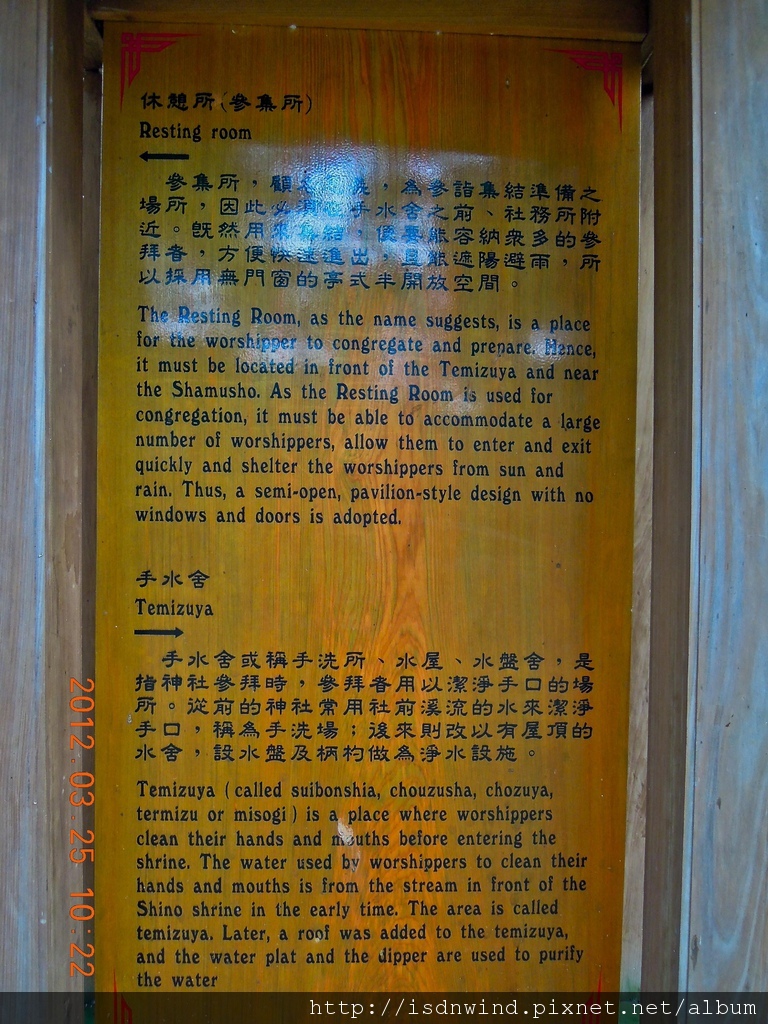 休憩所(參集所)
Resting room
參集所，顧名思義，為參詣集結準備之
場所，因此必須 手水舍之前、社務所附
近。既然用來集結，便要能容納眾多的參
拜者，方便快速進出，且能遮陽避雨，所
以採用無門窗的亭式半開放空間。
The Resting Room, as the name suggests, is a place
for the worshipper to congregate and prepare. Hence,
it must be located in front of the Temizuya and near
the Shamusho. As the Resting Room is used for
congregation, it must be able to accommodate a large
number of worshippers, allow them to enter and exit
quickly and shelter the worshippers from sun and
rain. Thus, a semi-open, pavilion-style design with no
windows and doors is adopted.
手水舍
Temizuya
手水舍或稱手洗所、水屋、水盤舍，是
指神社參拜時，參拜者用以潔淨手口的場
所。從前的神社常用社前溪流的水來潔淨
手口，稱為手洗場；後來則改以有屋頂的
水舍，設水盤及柄杓做為淨水設施。
Temizuya (called suibonshia, chouzusha, chozuya,
termizu or misogi) is a place where worshippers
clean their hands and mouths before entering the
shrine. The water used by worshippers to clean their
hands and mouths is from the stream in front of the
Shino shrine in the early time. The area is called
temizuya. Later, a roof was added to the temizuya,
and the water plat and the dipper are used to purify
the water
2012.03.25 10:22
http://isdnwind.pixnet.net/album